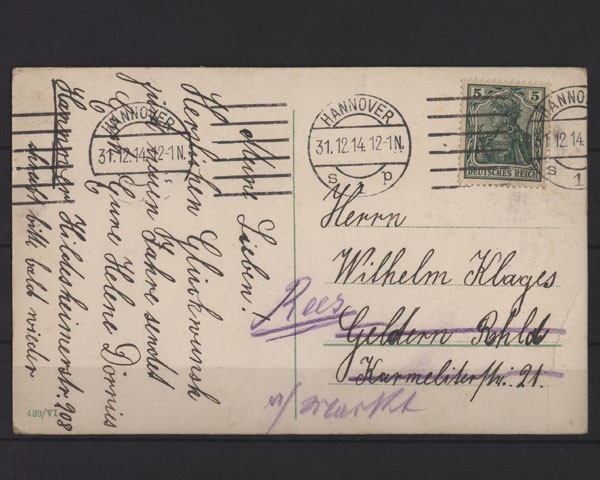 Meine Lieben!
Herzlichen Glückwunsch
zum neuen Jahre sendet
Euch Eure Helene Dörnies
Hannover Hildesheimerstr. 208
schreibt bitte bald wieder
HANNOVER
31.12.14.12-1N.
HANNOVER
31.12.14.12-1N.
s p
5 5
DEUTSCHES REICH
HANNO
12.14.
s 1
Herrn
Wilhelm Klages
Geldern Rhld
Karmeliterstr. 21.
Rees
markt
439/VI